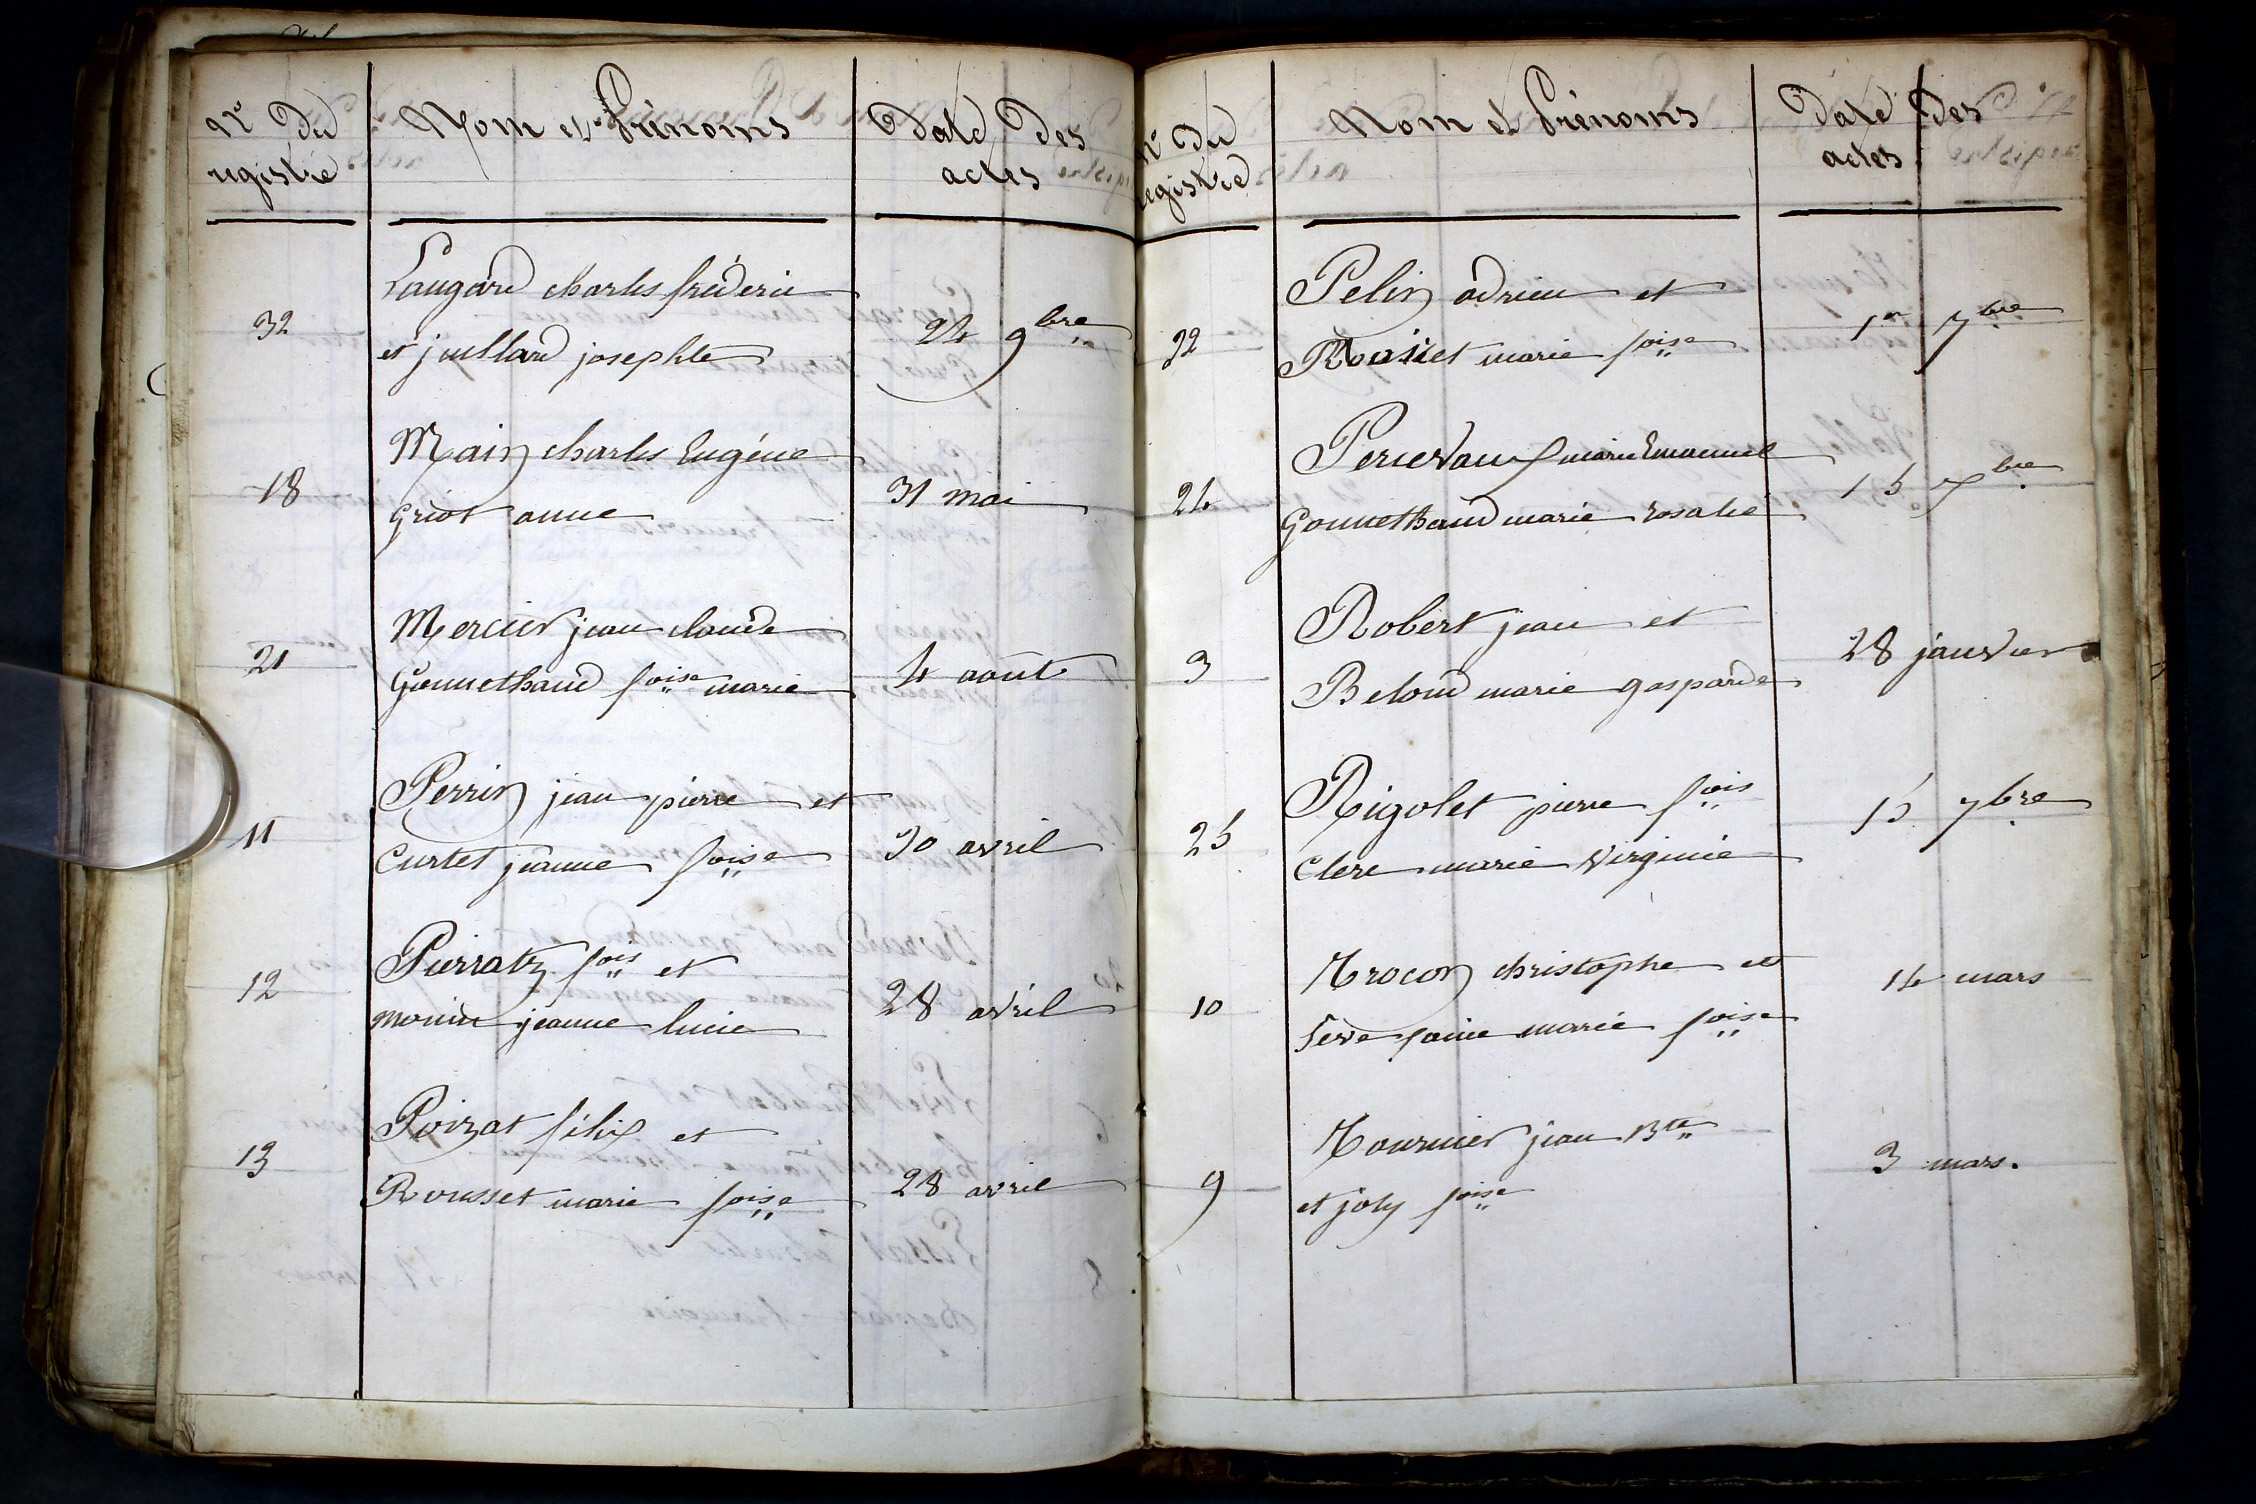 N° du
registre
Nom et Prénoms
Date des
actes
32
Laugard charles fréderic
et juillard josephte
24 9bre
18
Main charles Eugéne
Griot anne
31 mai
21
Mercier jean claude
Gonnethaud foise marie
4 août
11
Perrin jean pierre et
Curtet jeanne foise
30 avril
12
Pierratz fois et
monin jeanne lucie
28 avril
13
Poizat félix et
Rousset marie foise
28 avril
N° du
registre
Nom et Prénoms
Date des
actes
22
Pelin adrien et
Rousset marie foise
1er 7bre
24
Percevaux marie Emanuel
Gonnethaud marie rosalie
15 7bre
3
Robert jean et
Beloud marie gasparde
28 janvier
25
Rigolet pierre fois
Clere marie Virginie
15 7bre
10
Trocon christophe et
marie foise
14 mars
9
Tournier jean Bte
et joly foise
3 mars.